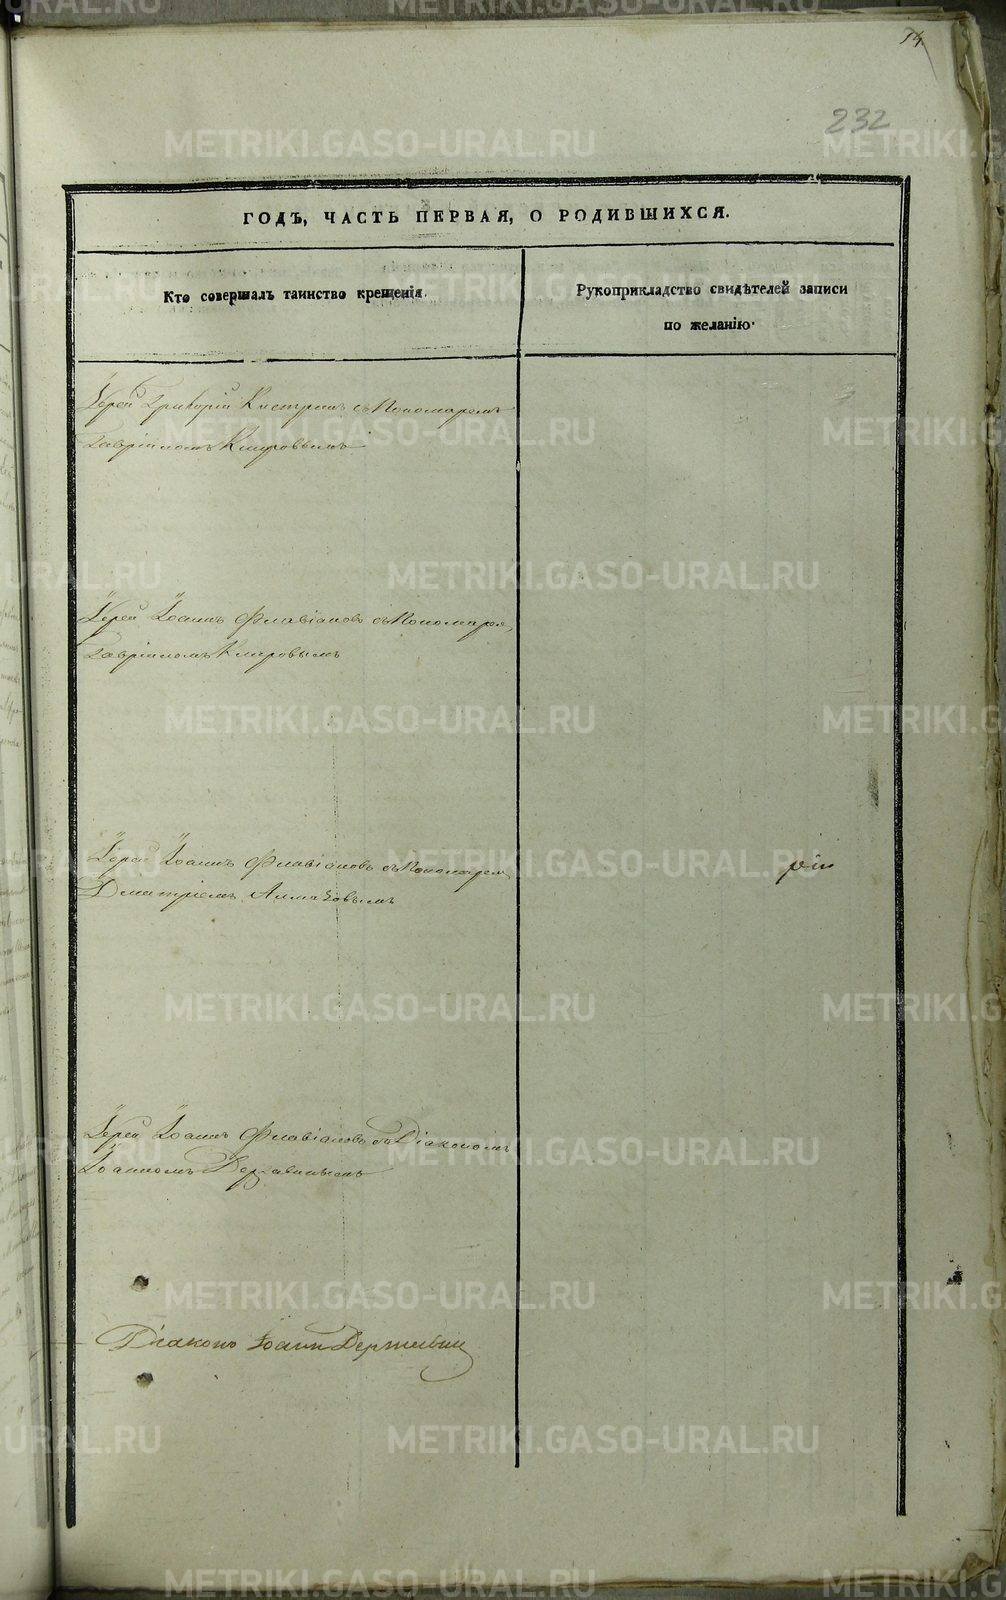 14
232
ГОДЪ, ЧАСТЬ ПЕРВАЯ, О РОДИВШИХСЯ.
Кто совершалъ таинство крещенія.
Рукоприкладство свидѣтелей записи
по желанію.
Іерей Григорій съ Пономаремъ
Гавріиломъ Кипровымъ
Іерей Іоаннъ Флавіановъ съ Пономаре,
Гавріиломъ Кипровымъ
Іерей Іоаннъ Флавіановъ съ Пономарем
Дмитріемъ Алмазовымъ
Іерей Іоаннъ Флавіановъ съ Діакономъ
Іоанномъ Державинымъ
Діаконъ Іоаннъ Державин
METRIKI.GASO-URAL.RU